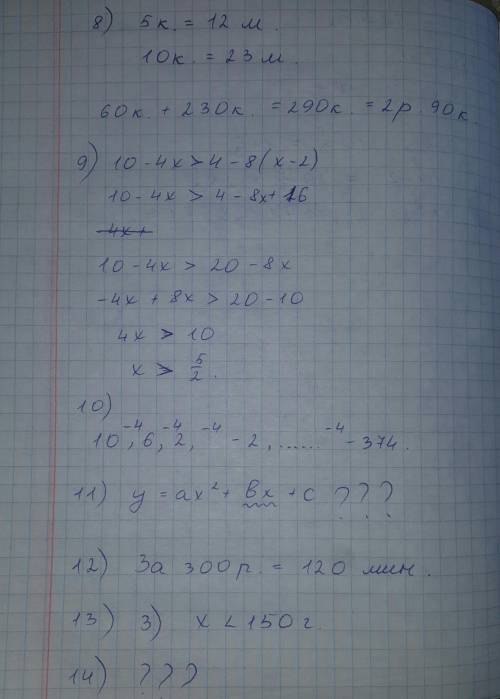 8) 5 к. = 12 м.
10 к. = 23 м.
60 к. + 230 к. = 290 к. = 2 р. 90 к.
9) 10 - 4x > 4 - 8(x - 2)
10 - 4x > 4 - 8x + 16
-4x +
10 - 4x > 20 - 8x
-4x + 8x > 20 - 10
4x > 10
x > 5/2.
10)
10, -4 6, -4 2, -4 -2, ...... -4 -374.
11) y = ax² + вx + c ???
12) За 300 р. = 120 мин.
13) 3) x < 150 г.
14) ???